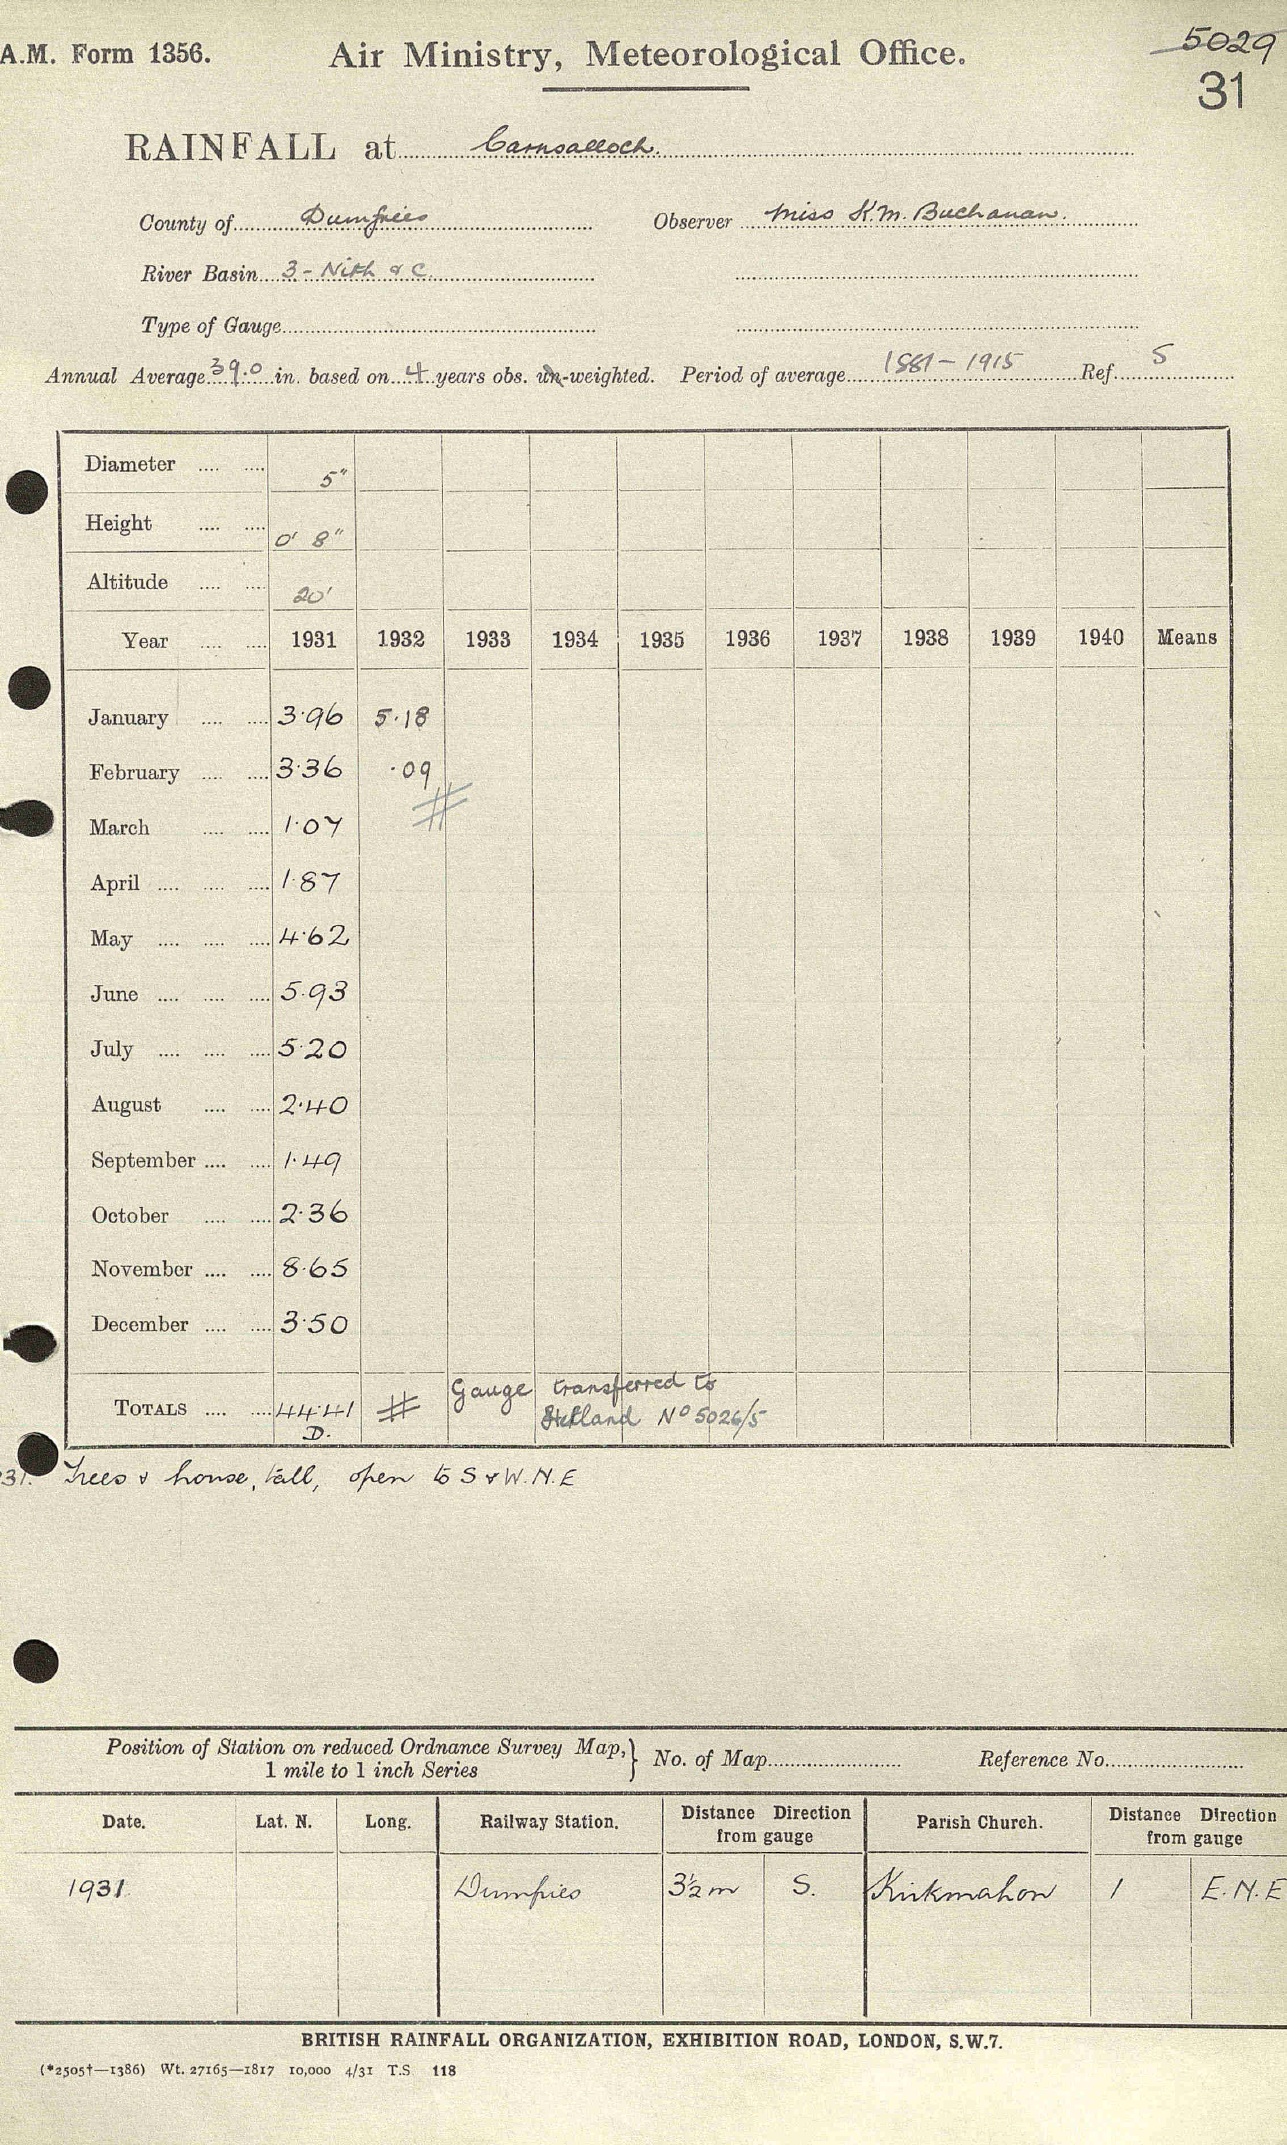 A.M. Form 1356.
Air Ministry, Meteorological Office.
5029
31
RAINFALL at Carnsalloch.
County of Dumfries Observer Miss K.M. Buchanan.
River Basin 3 - Nith & C.
Type of Gauge
Annual Average 39.0 in. based on 4 years obs. un-weighted. Period of average 1881 - 1915 Ref. S
Diameter .... .... 5"
Height .... .... 0' 8"
Altitude .... .... 20'
Year .... .... 1931 1932 1933 1934 1935 1936 1937 1938 1939 1940 Means
January .... .... 3.96 5.18
February .... .... 3.36 .09
#
March .... .... 1.07
April .... .... .... 1.87
May .... .... .... 4.62
June .... .... .... 5.93
July .... .... .... 5.20
August .... .... 2.40
September .... .... 1.49
October .... .... 2.36
November .... .... 8.65
December .... .... 3.50
TOTALS .... .... 44.41 # Gauge transferred to
D. No 5026/5
31. Trees & house, tall, open to S & W.N.E
Position of Station on reduced Ordnance Survey Map, } No. of Map Reference No.
1 mile to 1 inch Series
Date. Lat. N. Long. Railway Station. Distance Direction from gauge Parish Church. Distance Direction from gauge
1931 Dumfries 3½ m S. Kirkmahon 1 E.N.E
BRITISH RAINFALL ORGANIZATION, EXHIBITION ROAD, LONDON, S.W.7.
(*2505†—1386) Wt. 27165—1817 10,000 4/31 T.S 118